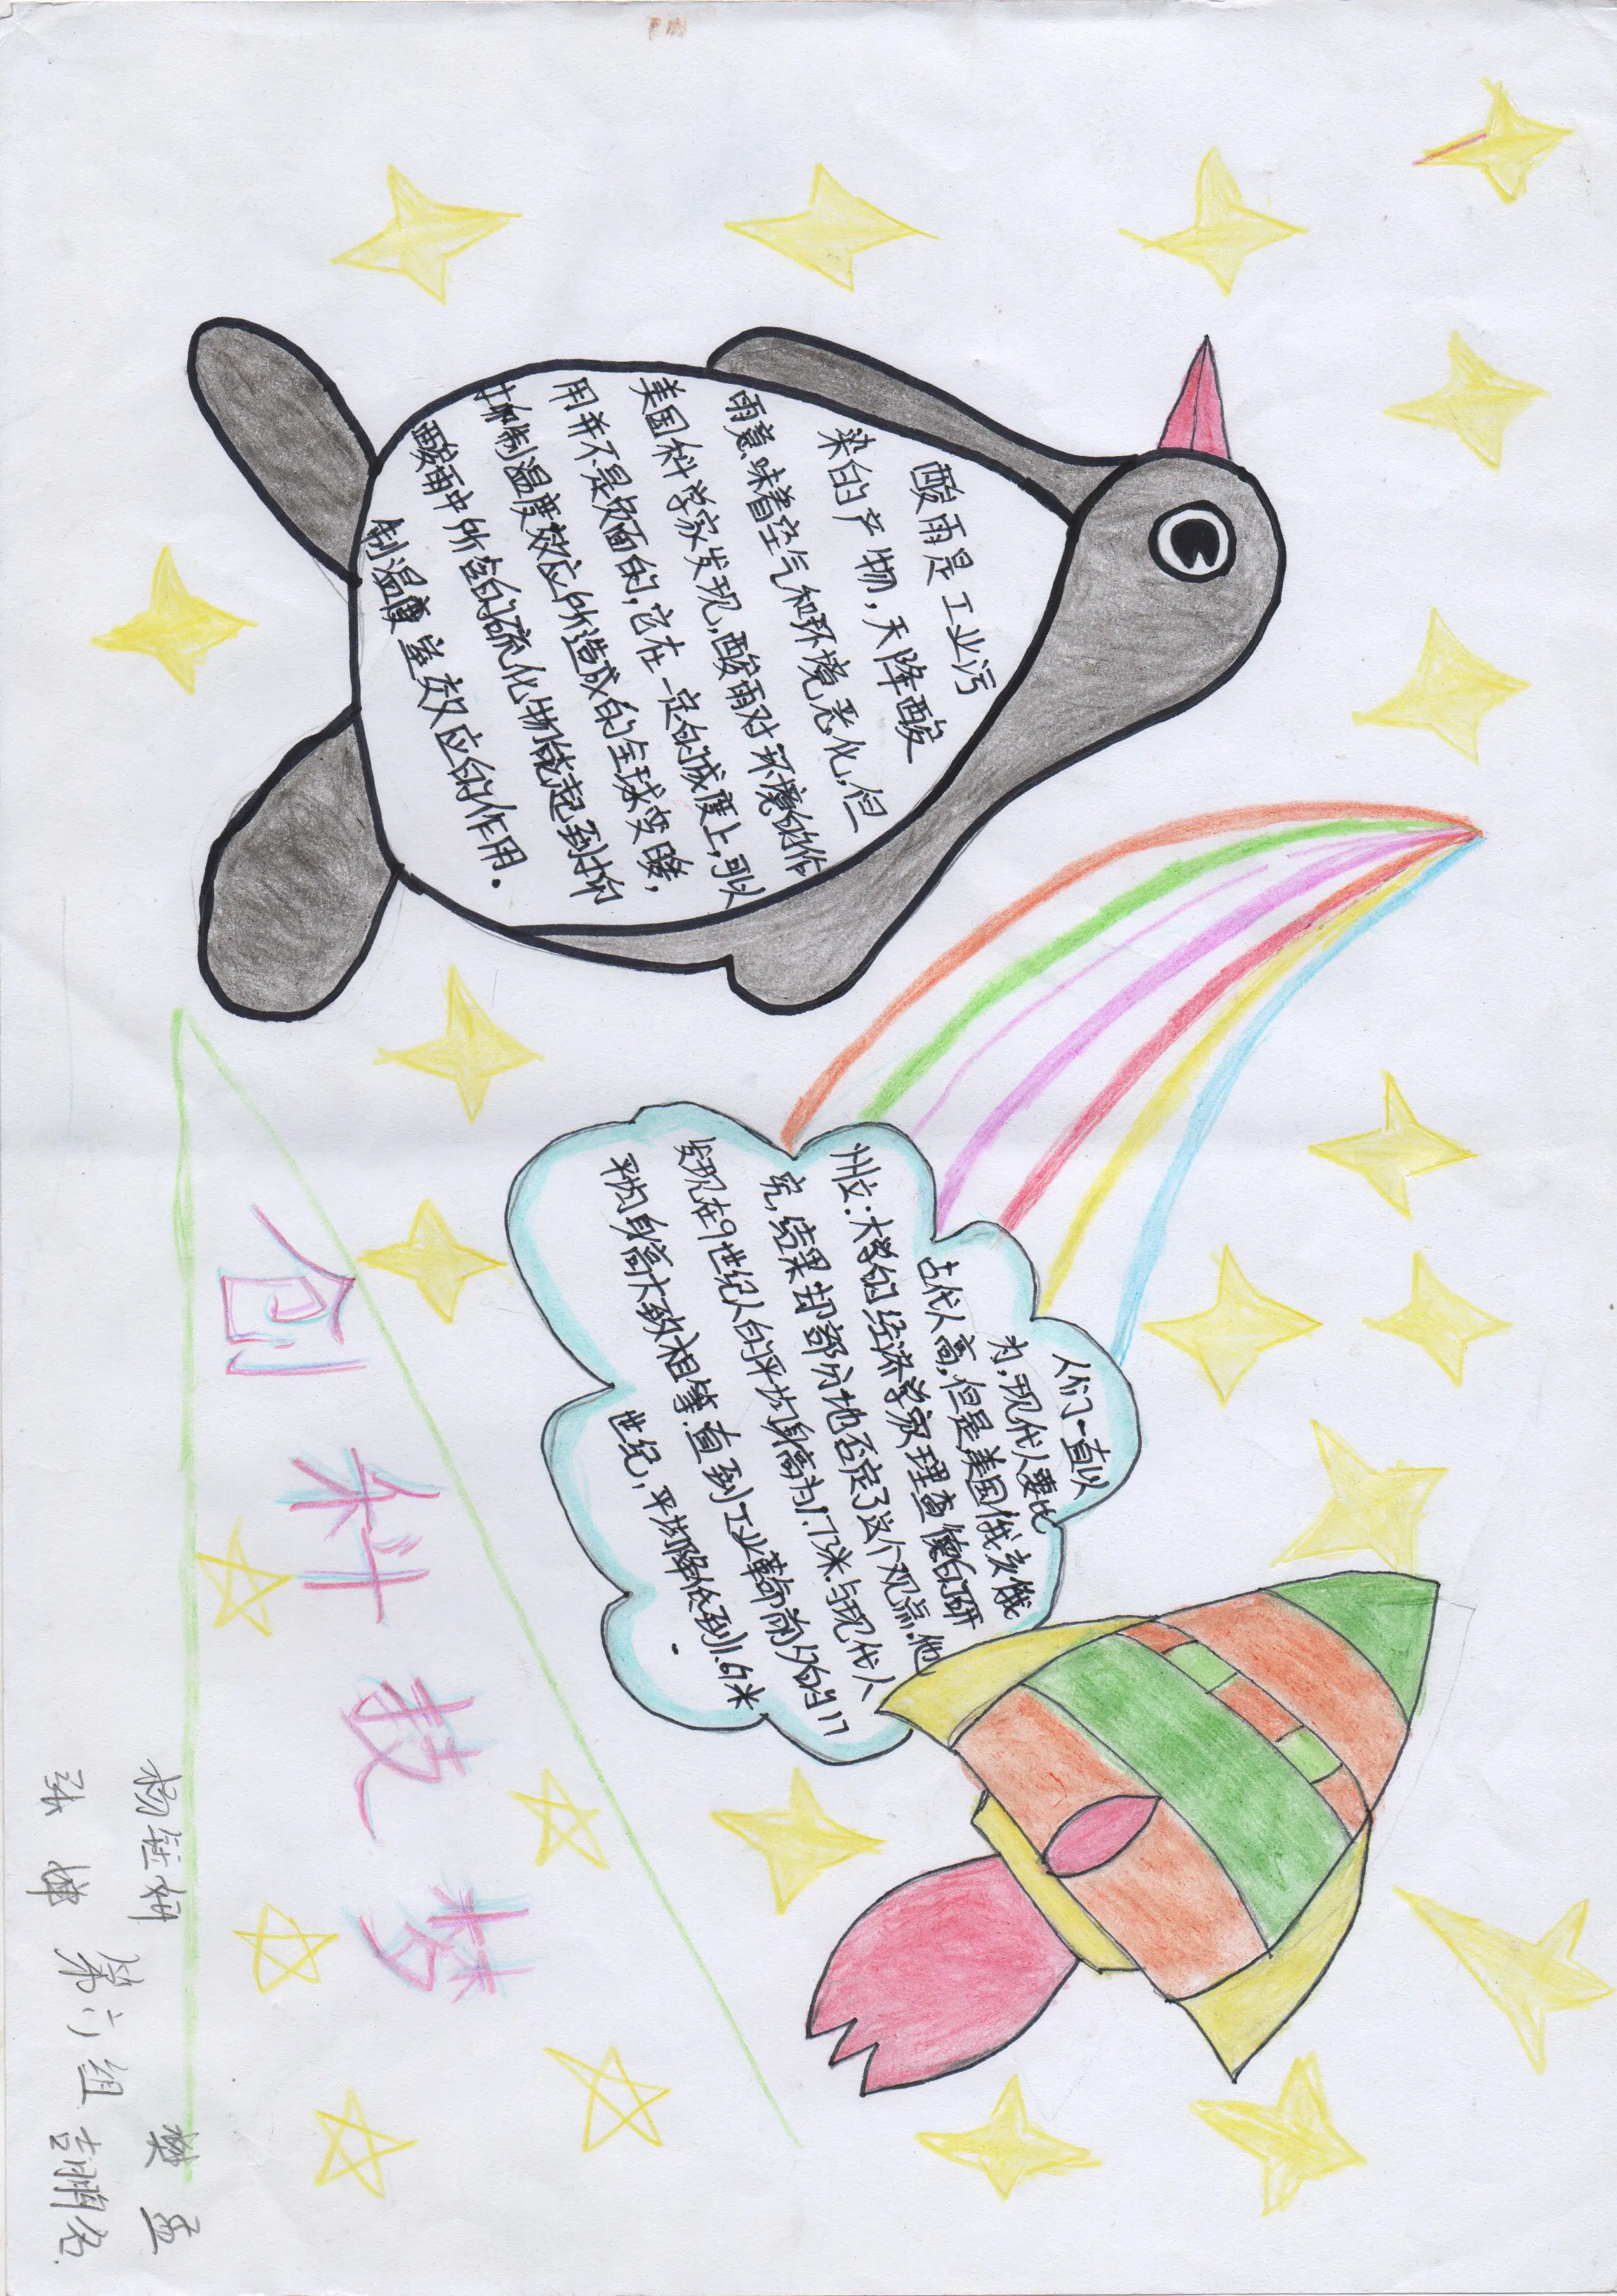 酸雨是工业污
染的产物,天降酸
雨意味着空气和环境恶化,但
美国科学家发现,酸雨对环境的作
用并不是负面的,它在一定的成度上,可以
抑制温度效应所造成的全球变暖,
酸雨中所含的硫化物能起到抑
制温室效应的作用.
人们一直以
为,现代人要比
古代人高,但是美国俄亥俄
州立:大学的经济学家理查德的研
究,结果却部分地否定了这个观点.他
发现在9世纪人的平均身高为1.73米.与现代人
平均身高大致相等.直到工业革命前夕的17
世纪,平均降低到1.67米.
创科技梦
第六组